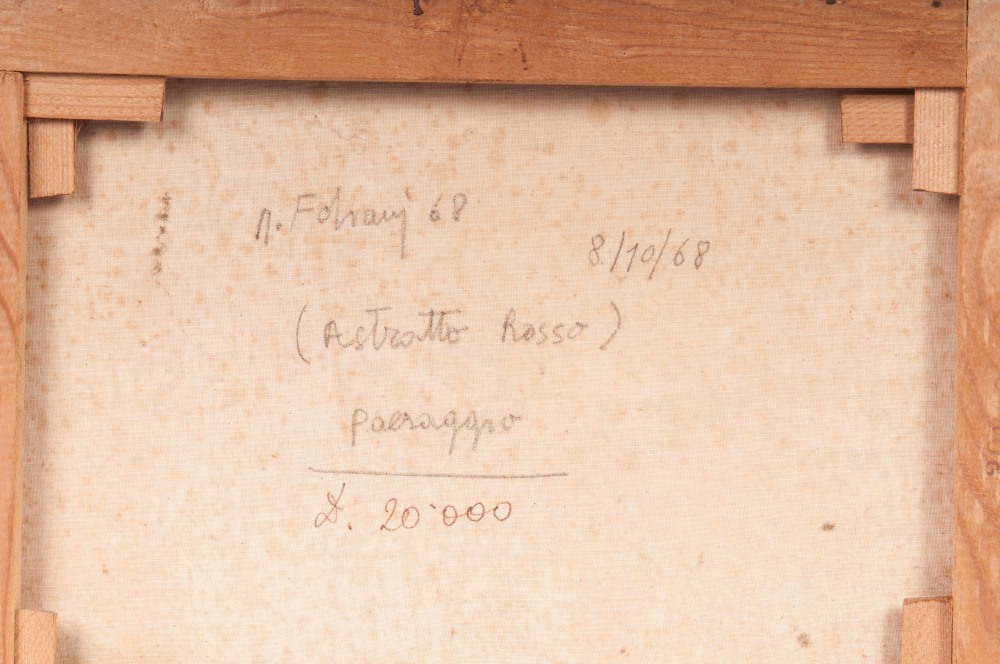 68
8/10/68
(Astratto Rosso)
Paesaggio
£. 20'000